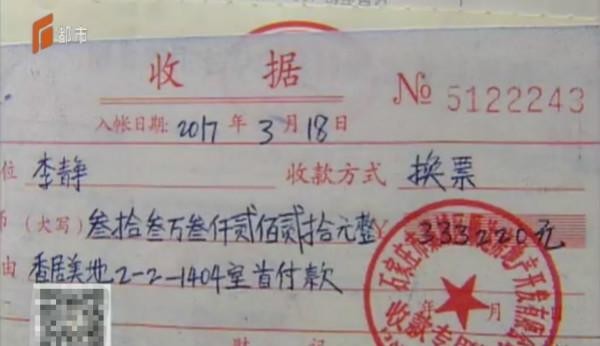 都市
收 据
№ 5122243
入帐日期: 2017 年 3 月 18 日
位 李静 收款方式 换票
币 (大写) 叁拾叁万叁仟贰佰贰拾元整 ¥ 333220元
由 香居美地2-2-1404室首付款
石家庄市
产开发有限
年 月
收款专用